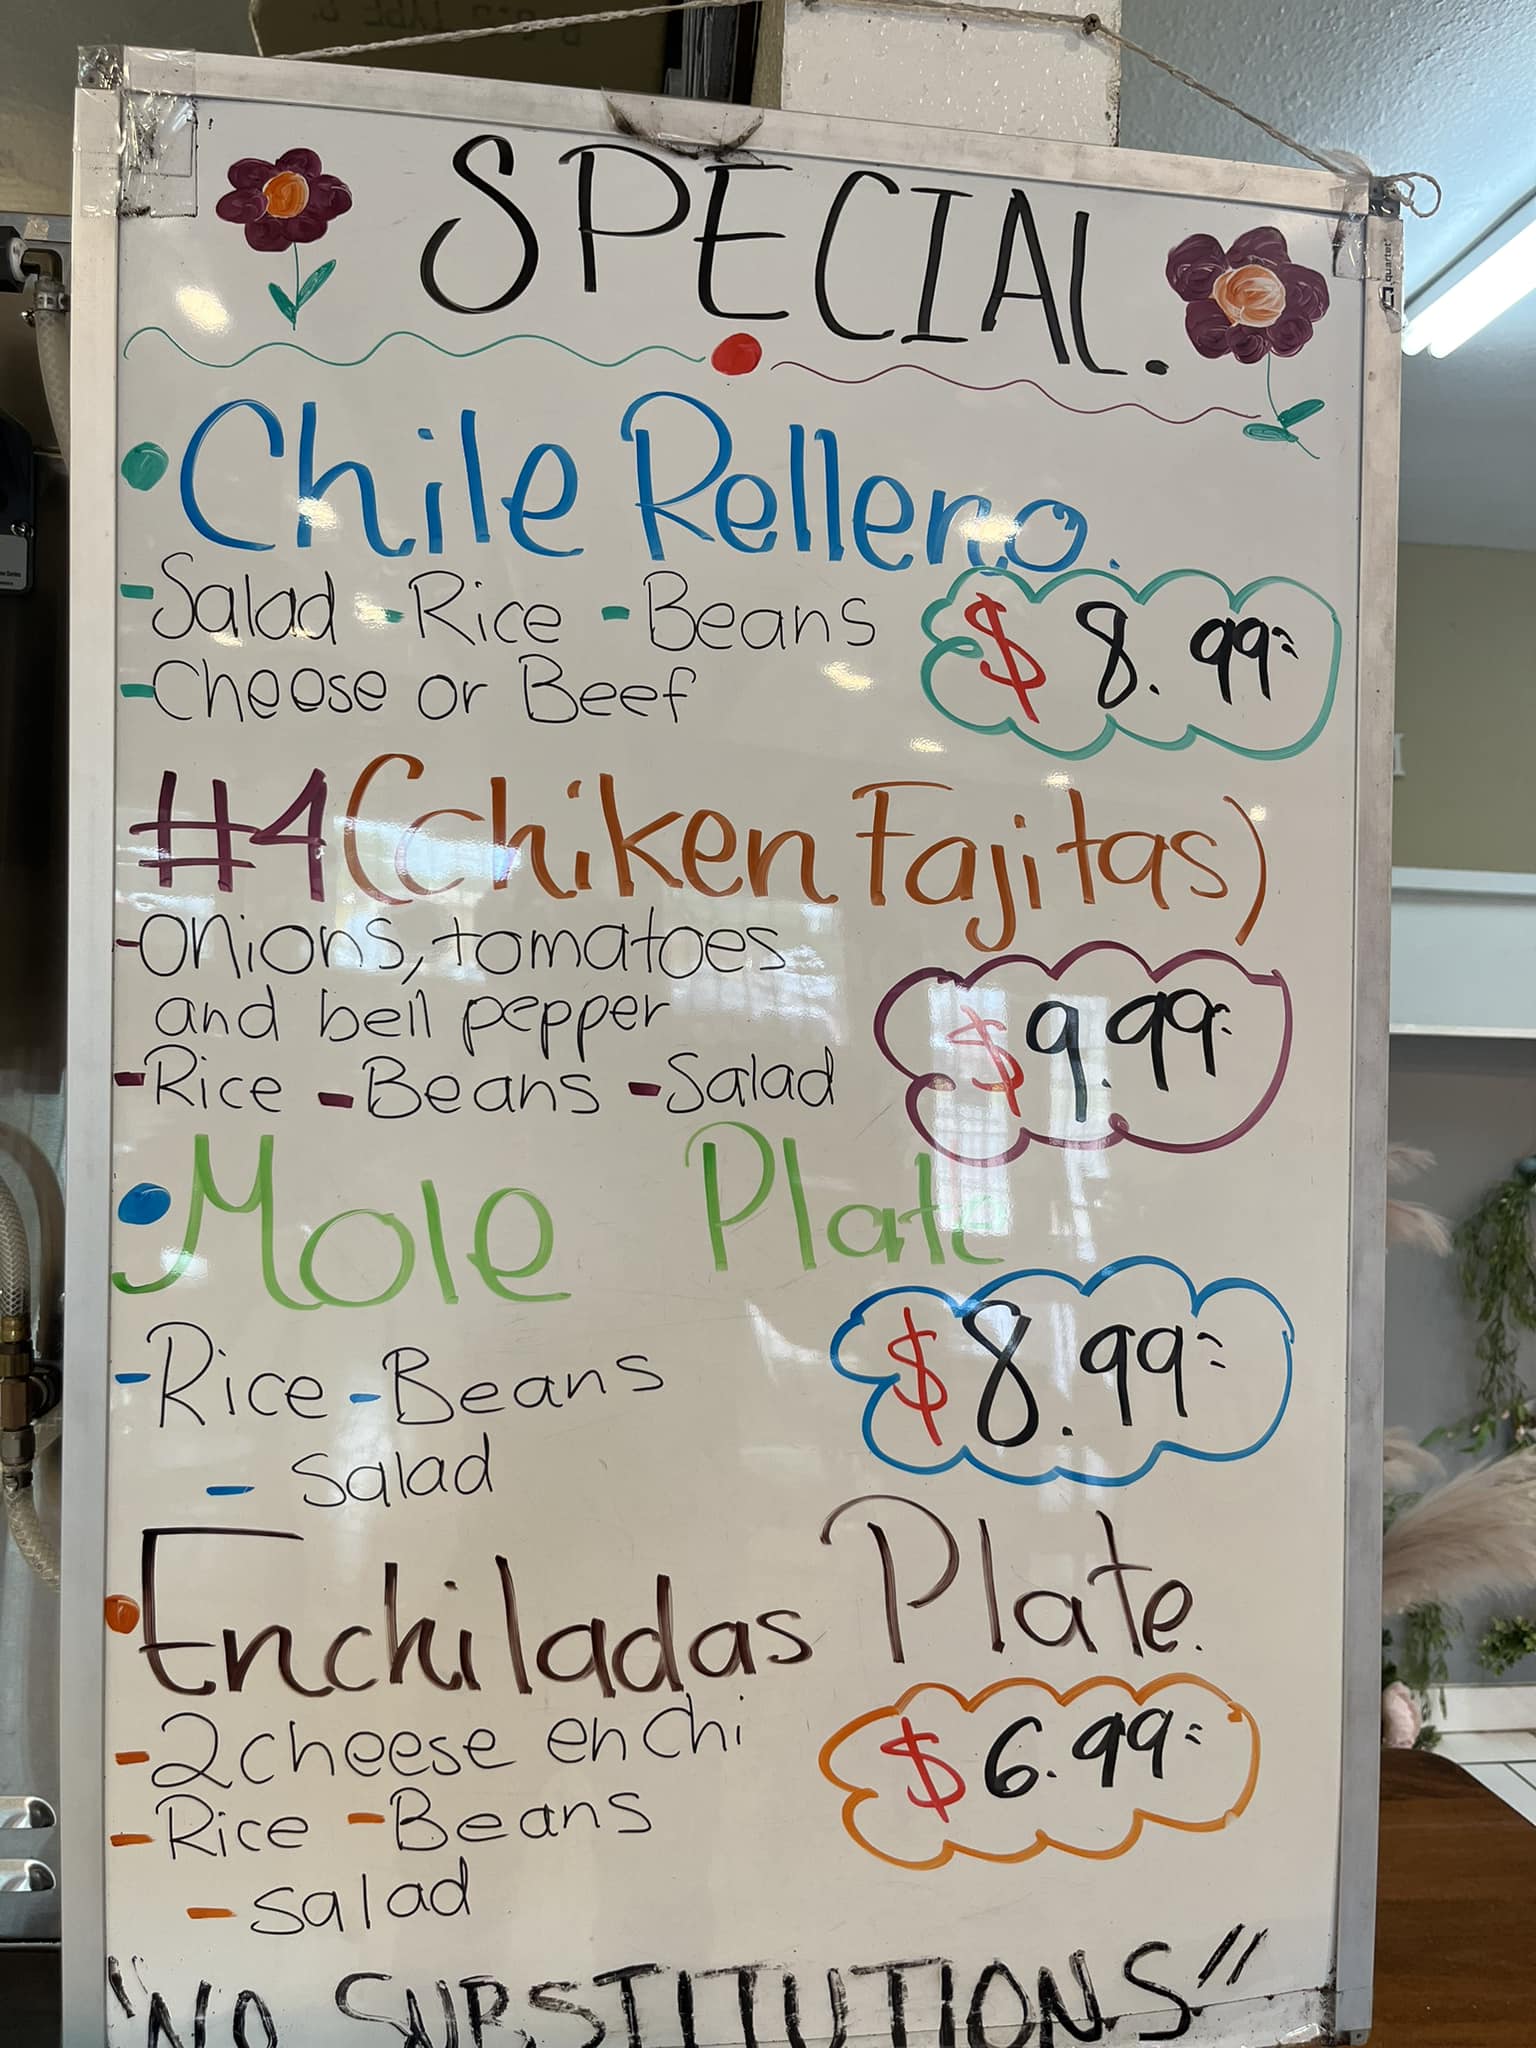 SPECIAL.
• Chile Relleno.
- Salad - Rice - Beans
- Cheese or Beef
$ 8.99=
#4 (chiken Fajitas)
- onions, tomatoes
and bell pepper
- Rice - Beans - Salad
$9.99=
• Mole Plate
- Rice - Beans
- Salad
$8.99=
• Enchiladas Plate.
- 2 cheese enchi
- Rice - Beans
- salad
$6.99=
"NO SUBSTITUTIONS"
quartet